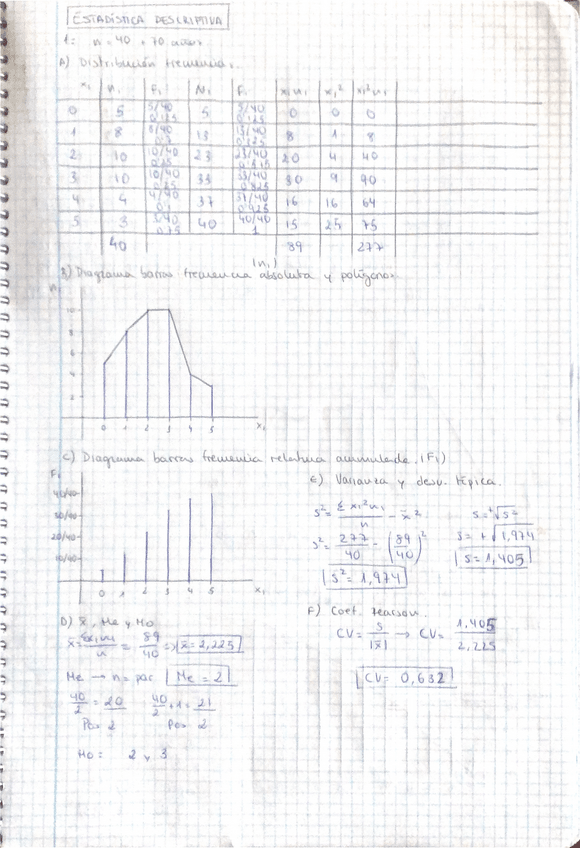 ESTADÍSTICA DESCRIPTIVA
1: n = 40 + 70 años
A) Distribución frecuencias.
xi ni fi Ni Fi xi ni xi² xi² ni
0 5 5/40 0'125 5 5/40 0'125 0 0 0
1 8 8/40 13 13/40 8 1 8
2 10 10/40 0'25 23 23/40 20 4 40
3 10 10/40 0'25 33 33/40 0'825 30 9 90
4 4 4/40 0'1 37 37/40 0'925 16 16 64
5 3 3/40 40 40/40 1 15 25 75
40 89 277
(ni)
B) Diagrama barras frecuencia absoluta y polígono.
ni
10
8
6
4
2
0 1 2 3 4 5 xi
C) Diagrama barras frecuencia relativa acumulada. (Fi)
Fi
40/40
30/40
20/40
10/40
0 1 2 3 4 5 xi
D) x̄, Me y Mo
x̄ = Σxi ni / n = 89/40 => x̄ = 2,225
Me → n = par Me = 2
40/2 = 20 40/2 + 1 = 21
Pos 2 Pos 2
Mo: 2 y 3
E) Varianza y desv. típica.
s² = Σ xi² ni / n - x̄²
s = +√s²
s² = 277/40 - (89/40)²
s = +√1,974
s² = 1,974
s = 1,405
F) Coef. Pearson.
CV = s/|x̄| → CV = 1,405/2,225
CV = 0,632